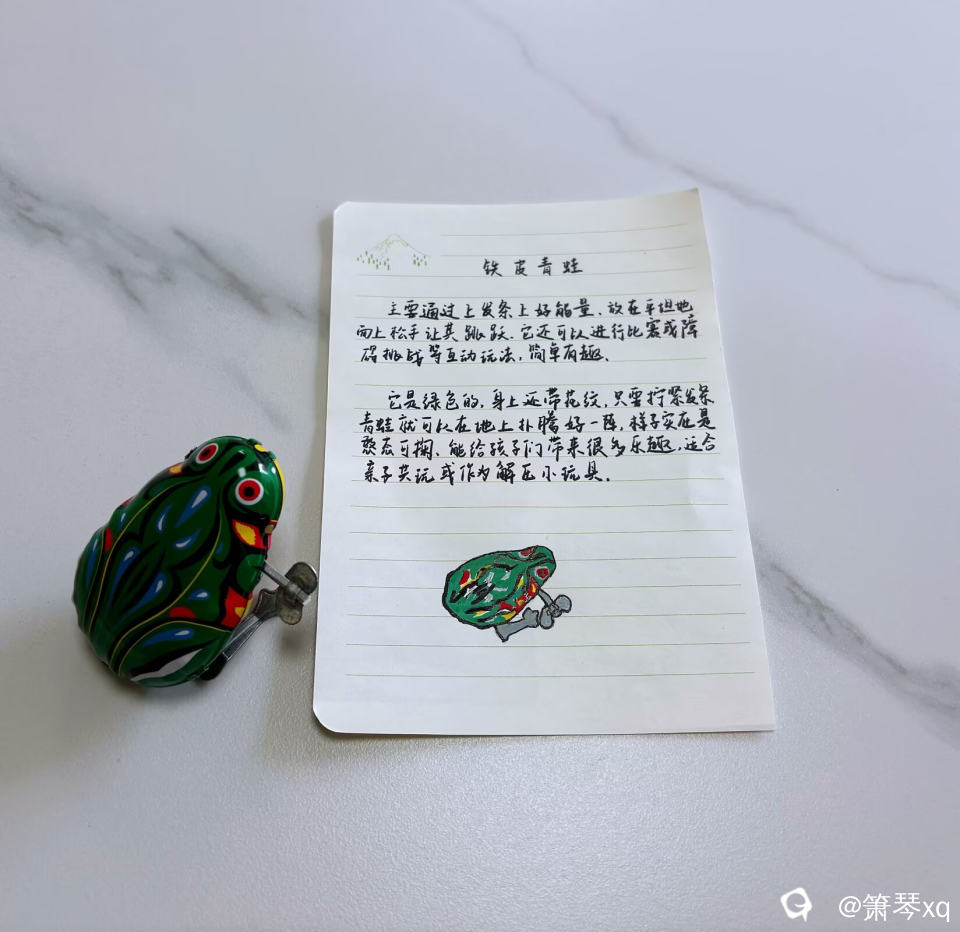 铁皮青蛙
主要通过上发条上好能量、放在平坦地
面上松手让其跳跃.它还可以进行比赛或障
碍挑战等互动玩法,简单有趣.
它是绿色的,身上还带花纹,只要拧紧发条
青蛙就可以在地上扑腾好一阵,样子实在是
憨态可掬、能给孩子们带来很多乐趣,适合
亲子共玩或作为解压小玩具.
@箫琴xq